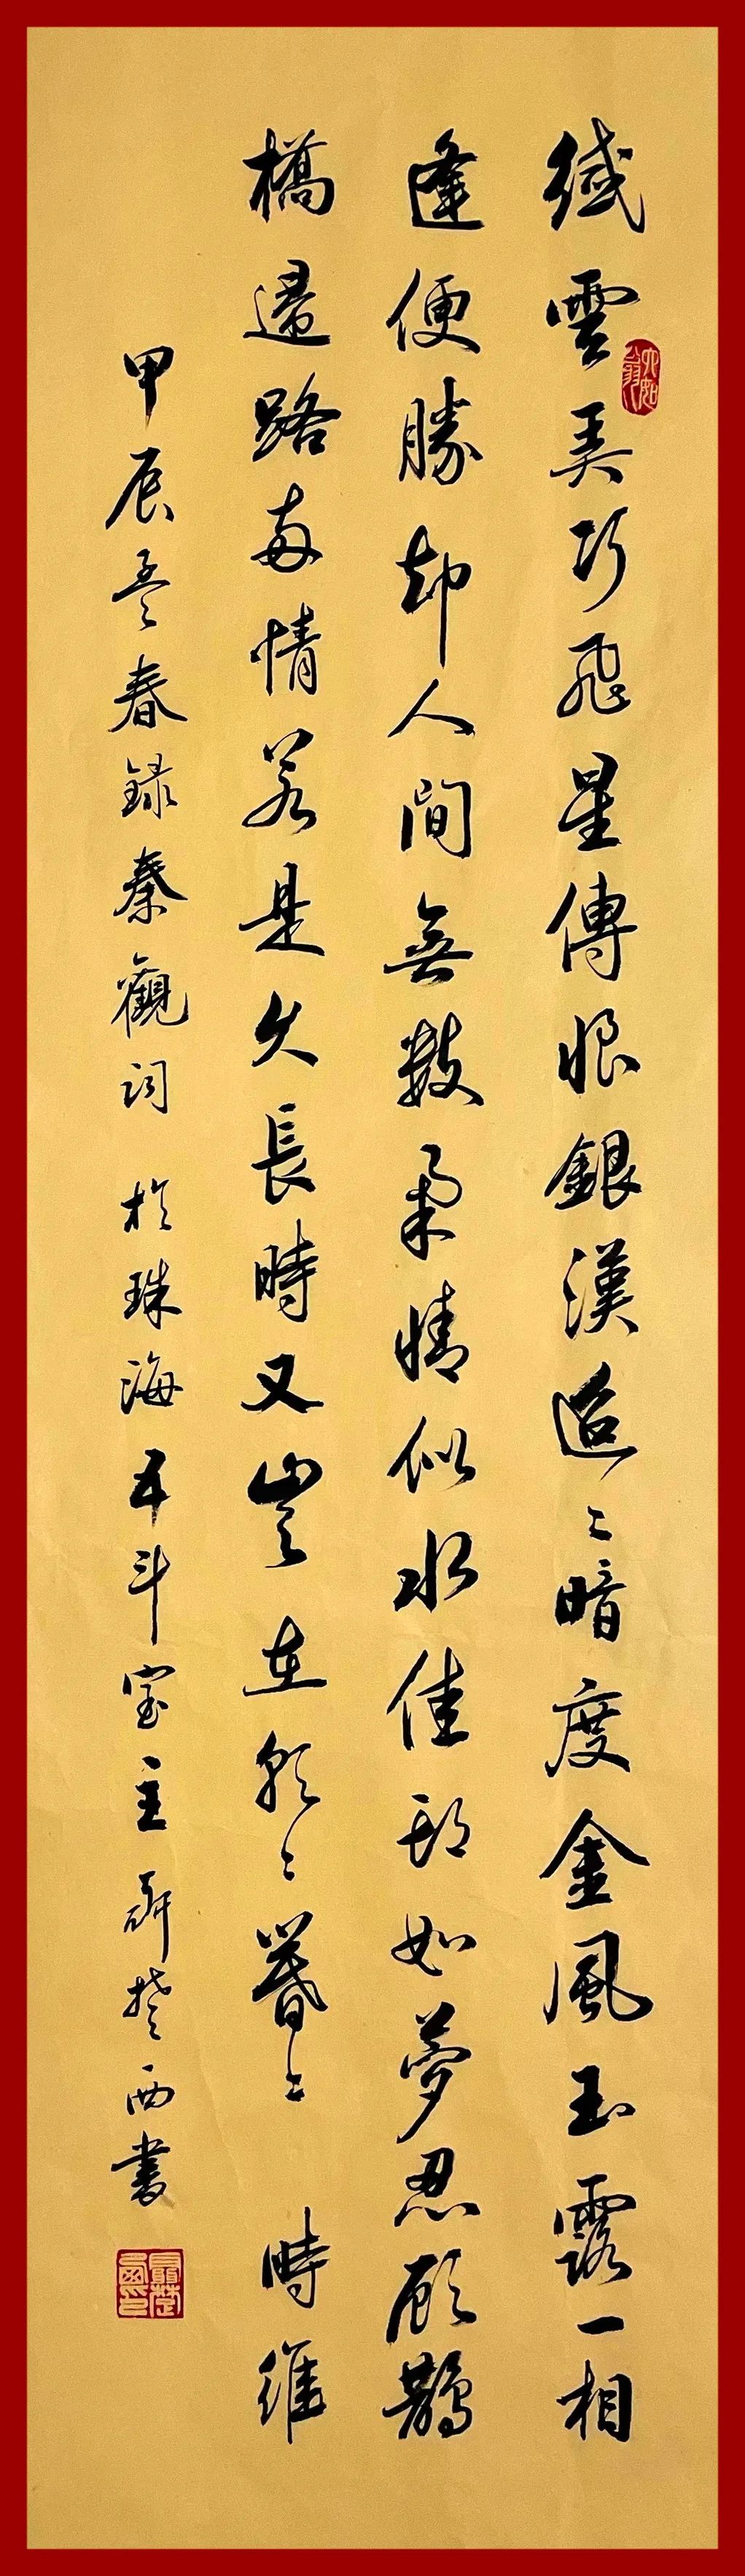 纖雲弄巧飛星傳恨銀漢迢〻暗度金風玉露一相
逢便勝却人間無數柔情似水佳期如夢忍顧鵲
橋歸路兩情若是久長時又豈在朝〻暮〻 時維
甲辰孟春録秦觀詞 於珠海五斗室主聶楚西書